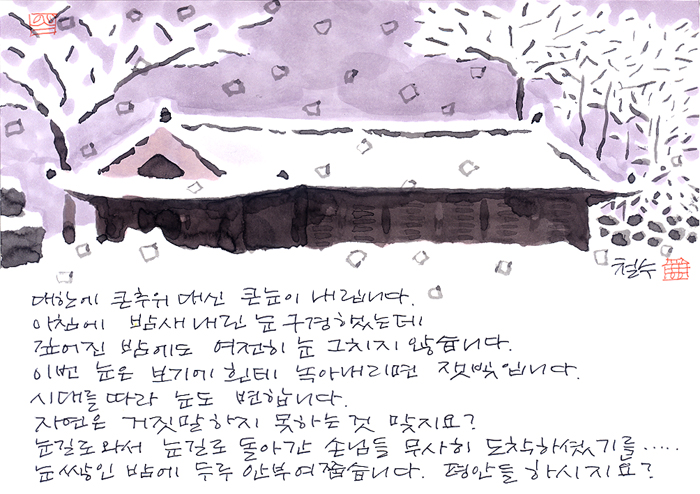 철수
대한에 큰추위 대신 큰눈이 내립니다.
아침에 밤새내린 눈 구경했는데
깊어진 밤에도 여전히 눈 그치지 않습니다.
이번 눈은 보기에 흰데 녹아내리면 잿빛입니다.
시대를 따라 눈도 변합니다.
자연은 거짓말하지 못하는 것 맞지요?
눈길로와서 눈길로 돌아간 손님들 무사히 도착하셨기를.....
눈쌓인 밤에 두루 안부여쭙습니다. 평안들 하시지요?